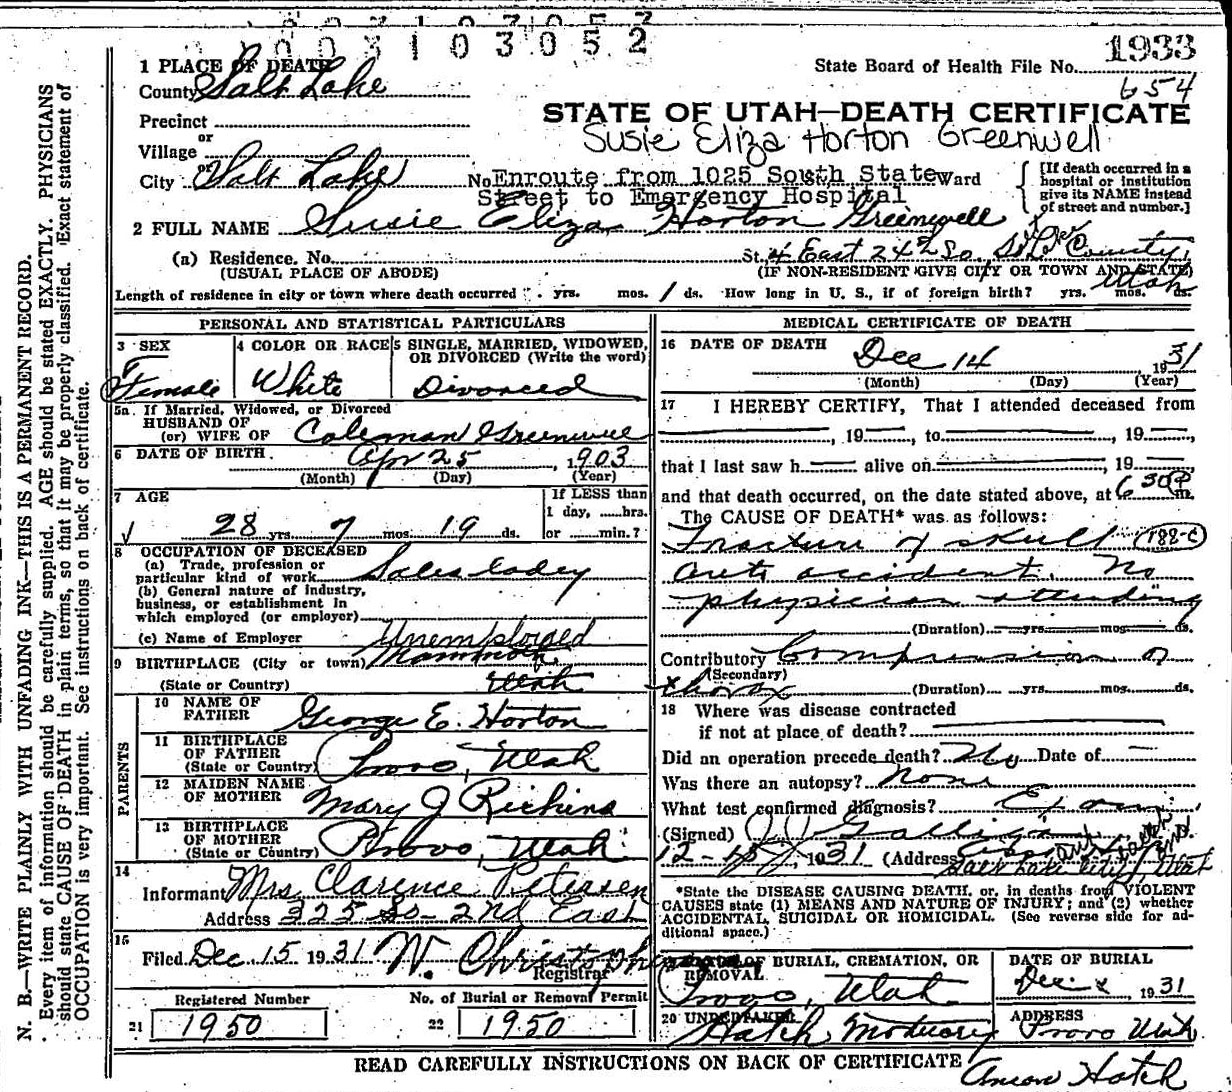 003103052
1933
1 PLACE OF DEATH
State Board of Health File No.
654
County Salt Lake
STATE OF UTAH—DEATH CERTIFICATE
Precinct
Susie Eliza Horton Greenwell
or
Village
or
City Salt Lake No Enroute from 1025 South State Ward
Street to Emergency Hospital
[If death occurred in a
hospital or institution
give its NAME instead
of street and number.]
2 FULL NAME Susie Eliza Horton Greenwell
(a) Residence. No. St. 4 East 24th So. County,
(USUAL PLACE OF ABODE) (IF NON-RESIDENT GIVE CITY OR TOWN AND STATE)
Utah
Length of residence in city or town where death occurred yrs. mos. 1 ds. How long in U. S., if of foreign birth? yrs. mos. ds.
PERSONAL AND STATISTICAL PARTICULARS
3 SEX
Female
4 COLOR OR RACE
White
5 SINGLE, MARRIED, WIDOWED,
OR DIVORCED (Write the word)
Divorced
5a. If Married, Widowed, or Divorced
HUSBAND OF
(or) WIFE OF Coleman Greenwell
6 DATE OF BIRTH Apr 25, 1903
(Month) (Day) (Year)
7 AGE
28 yrs. 7 mos. 19 ds.
If LESS than
1 day, ......hrs.
or ......min.?
8 OCCUPATION OF DECEASED
(a) Trade, profession or
particular kind of work Saleslady
(b) General nature of industry,
business, or establishment in
which employed (or employer)
(c) Name of Employer Unemployed
9 BIRTHPLACE (City or town) Mammoth
(State or Country) Utah
PARENTS
10 NAME OF
FATHER George E. Horton
11 BIRTHPLACE
OF FATHER
(State or Country) Provo, Utah
12 MAIDEN NAME
OF MOTHER Mary J Richins
13 BIRTHPLACE
OF MOTHER
(State or Country) Provo, Utah
14
Informant Mrs Clarence Petersen
Address 325 So 2nd East
15
Filed Dec 15 1931 W. Christoph
Registrar
Registered Number
21 1950
No. of Burial or Removal Permit
22 1950
MEDICAL CERTIFICATE OF DEATH
16 DATE OF DEATH
Dec 14 1931
(Month) (Day) (Year)
17 I HEREBY CERTIFY, That I attended deceased from
, 19 , to , 19 ,
that I last saw h alive on , 19
and that death occurred, on the date stated above, at 6 30 P m.
The CAUSE OF DEATH* was as follows:
Fracture of skull (188-c)
auto accident. No
physician attending
(Duration) yrs. mos. ds.
Contributory Compression of
(Secondary)
thorax (Duration) yrs. mos. ds.
18 Where was disease contracted
if not at place of death?
Did an operation precede death? No Date of
Was there an autopsy? none
What test confirmed diagnosis? Exam
(Signed)
12-15, 1931 (Address
Salt Lake City, Utah
*State the DISEASE CAUSING DEATH, or, in deaths from VIOLENT
CAUSES state (1) MEANS AND NATURE OF INJURY; and (2) whether
ACCIDENTAL, SUICIDAL OR HOMICIDAL. (See reverse side for ad-
ditional space.)
OF BURIAL, CREMATION, OR
REMOVAL
Provo, Utah
DATE OF BURIAL
Dec , 1931
20 UNDERTAKER
Hatch Mortuary
ADDRESS
Provo Utah
READ CAREFULLY INSTRUCTIONS ON BACK OF CERTIFICATE
Anson Hatch
N. B.—WRITE PLAINLY WITH UNFADING INK—THIS IS A PERMANENT RECORD.
Every item of information should be carefully supplied. AGE should be stated EXACTLY. PHYSICIANS
should state CAUSE OF DEATH in plain terms, so that it may be properly classified. Exact statement of
OCCUPATION is very important. See instructions on back of certificate.